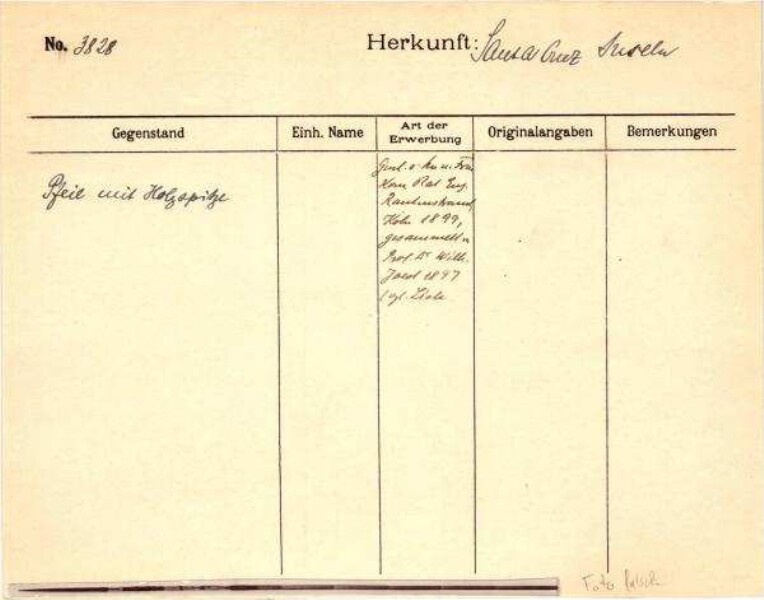 No. 3828 Herkunft: Santa Cruz Inseln
Gegenstand Einh. Name Art der Erwerbung Originalangaben Bemerkungen
Pfeil mit Holzspitze
v. Hn u. Frau
Kom Rat Eug.
Rautenstrauch,
Köln 1899,
gesammelt v.
Prof. Dr Wilh.
Joest 1897
Foto falsch